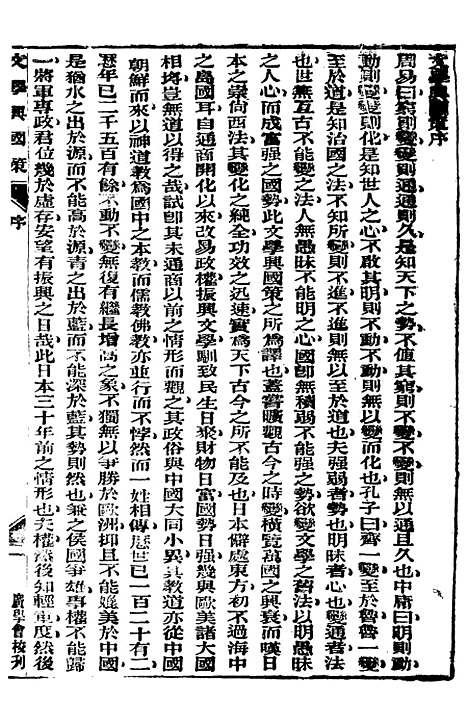 文學興國策序
周易曰窮則變變則通通則久是知天下之勢不值其窮則不變不變則無以通且久也中庸曰明則動
動則變變則化是知世人之心不啟其明則不動不動則無以變而化也孔子曰齊一變至於魯魯一變
至於道是知治國之法不知所變則不進不進則無以至於道也夫强弱者勢也明昧者心也變通者法
也世無亙古不變之法人無愚昧不能明之心國卽無積弱不能强之勢欲變文學之舊法以明愚昧
之人心而成富强之國勢此文學興國策之所爲譯也蓋嘗曠觀古今之時變橫覽萬國之興衰而嘆日
本之崇尚西法其變化之純全功效之迅速實爲天下古今之所不能及也日本僻處東方初不過海中
之島國耳自通商開化以來改易政權振興文學馴致民生日聚財物日富國勢日强幾與歐美諸大國
相埒豈無道以得之哉試卽其未通商以前之情形而觀之其政俗與中國大同小異其教道亦從中國
朝鮮而來以神道教爲國中之本教而儒教佛教亦並行而不悖然而一姓相傳歷世已一百二十有二
歷年已二千五百有餘不動不變無復有繼長增高之象不獨無以爭勝於歐洲抑且不能媲美於中國
是猶水之出於源而不能高於源青之出於藍而不能深於藍其勢則然也兼之侯國爭雄專權不能歸
一將軍專政君位幾於虛存安望有振興之日哉此日本三十年前之情形也夫權然後知輕重度然後
文學興國策
序
一
廣學會校刊